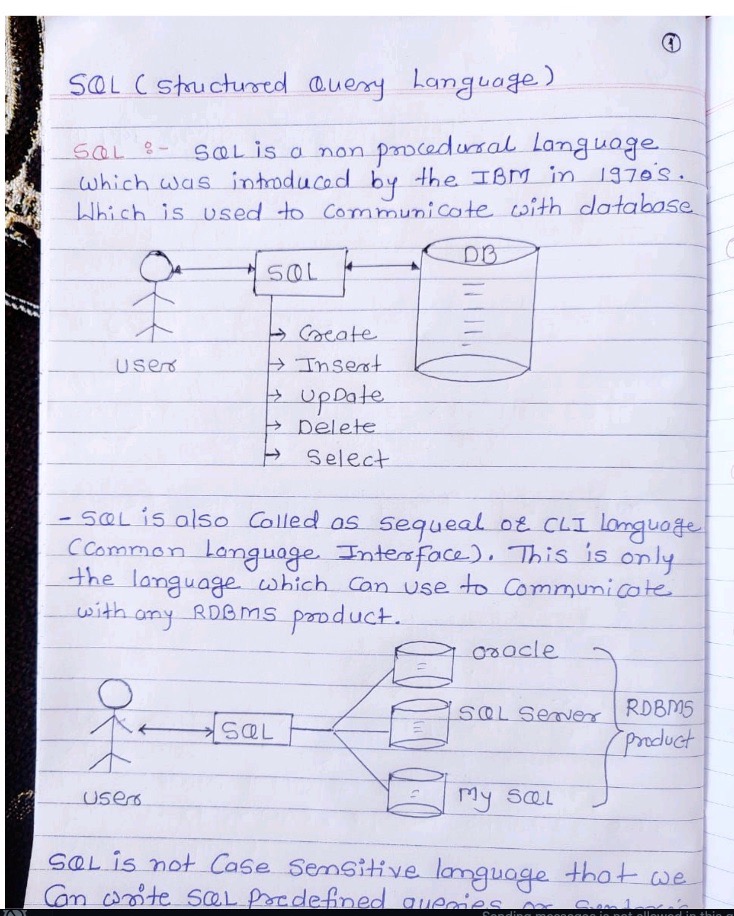 1
SQL (Structured Query Language)
SQL :- SQL is a non procedural Language
which was introduced by the IBM in 1970's.
Which is used to communicate with database
DB
SQL
User
→ Create
→ Insert
→ UpDate
→ Delete
→ Select
- SQL is also Called as sequeal or CLI language
(Common Language Interface). This is only
the language which can use to Communicate
with any RDBMS product.
oracle
SQL Server
RDBMS
product
SQL
User
My SQL
SQL is not Case Sensitive language that we
Can write SQL Predefined queries or